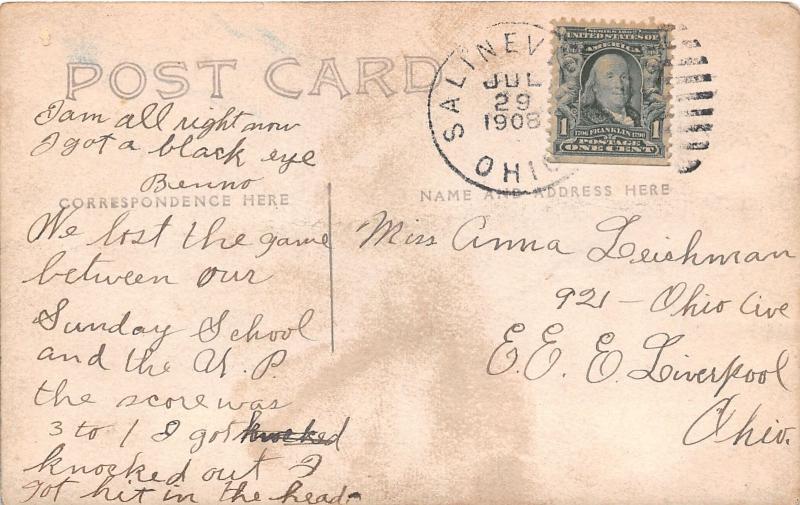 POST CARD
I am all right now
I got a black eye
Benno
CORRESPONDENCE HERE
We lost the game
between our
Sunday School
and the U. P.
the score was
3 to 1 I got knocked
knocked out I
got hit in the head.
SALINEV
JUL
29
1908
OHIO
SERIES 1902
UNITED STATES OF
AMERICA
1706 FRANKLIN 1790
1 POSTAGE 1
ONE CENT
NAME AND ADDRESS HERE
Miss Anna Leishman
921 - Ohio Ave
E. E. E. Liverpool
Ohio.